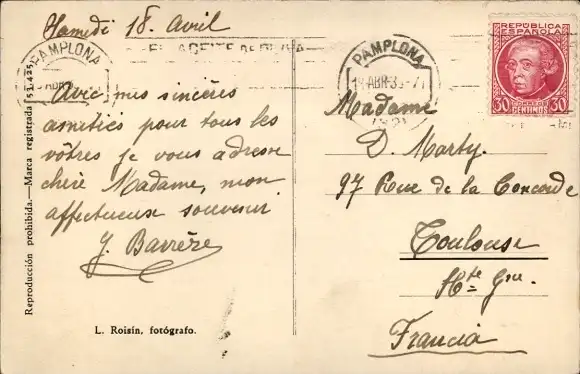 Samedi 18 Avril
PAMPLONA
EL ACEITE DE OLIVA
Avec mes sincères
amitiés pour tous les
vôtres je vous adresse
chère Madame, mon
affectueux souvenir
J. Barrère
L. Roisín, fotógrafo.
Reproducción prohibida.—Marca registrada
PAMPLONA
REPÚBLICA
ESPAÑOLA
30 CENTIMOS 30
Madame
D. Marty.
97 Rue de la Concorde
Toulouse
Hte Gne.
Francia